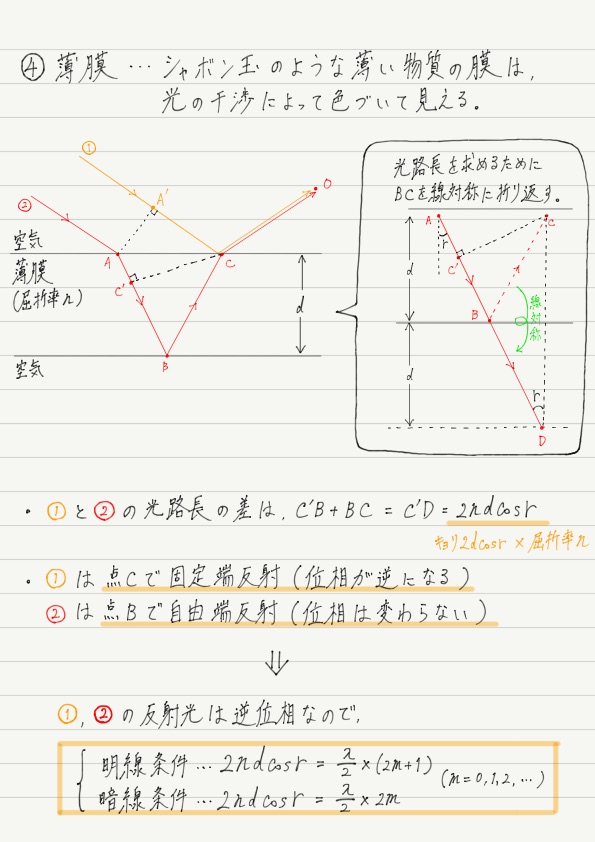 ④ 薄膜 … シャボン玉のような薄い物質の膜は,
光の干渉によって色づいて見える。
光路長を求めるために
BCを線対称に折り返す。
①
②
A'
O
空気
A
C
薄膜
(屈折率n)
C'
d
空気
B
A
C
r
C'
d
B
線対称
d
r
D
・①と②の光路長の差は, C'B+BC = C'D = 2ndcosr
キョリ2dcosr×屈折率n
・①は点Cで固定端反射(位相が逆になる)
②は点Bで自由端反射(位相は変わらない)
⇓
①, ②の反射光は逆位相なので,
明線条件…2ndcosr = λ/2 ×(2m+1)
(m=0,1,2,…)
暗線条件…2ndcosr = λ/2 × 2m